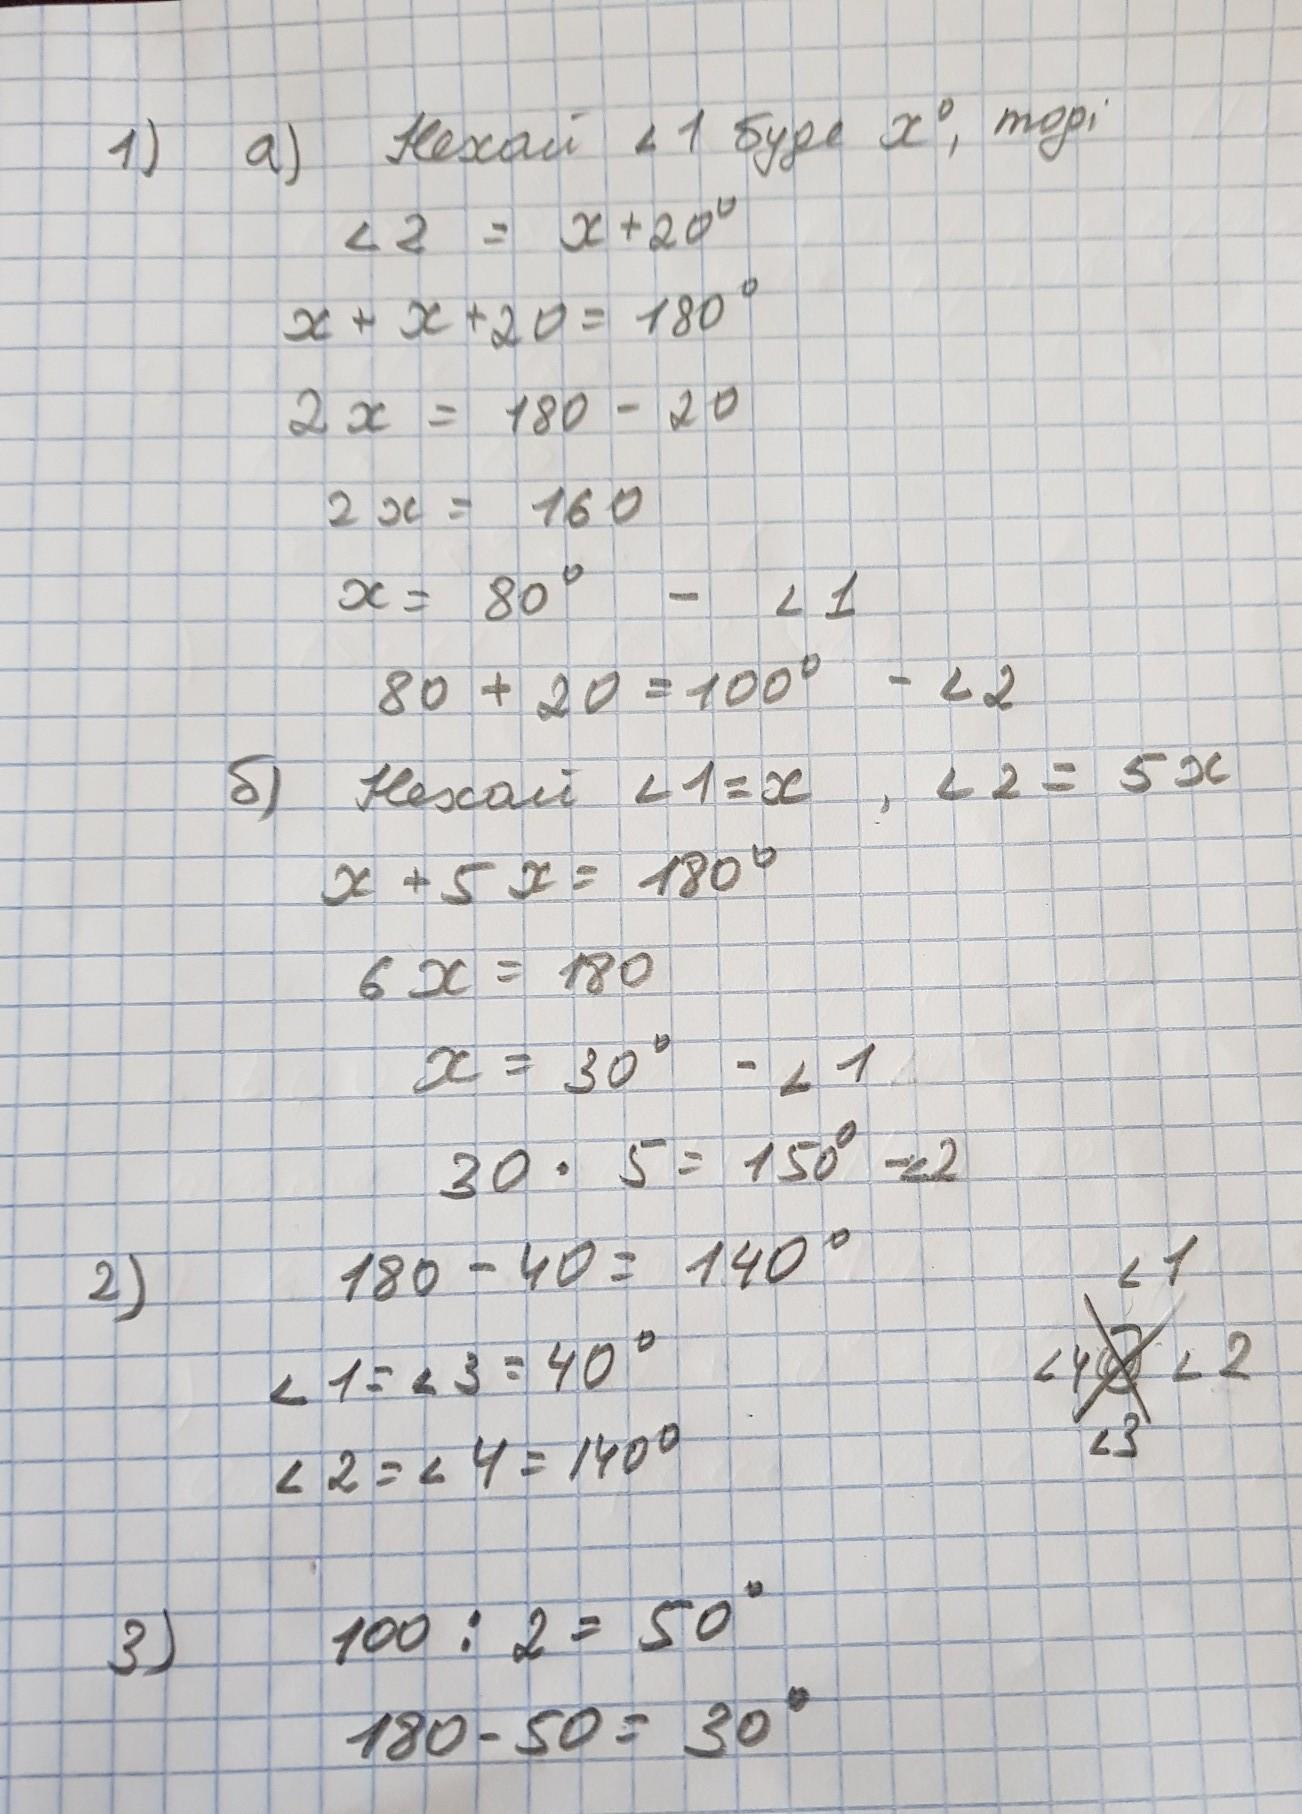 1) а) Нехай ∠1 буде x°, тоді
∠2 = x+20°
x + x +20= 180°
2x = 180 - 20
2x = 160
x = 80° - ∠1
80 + 20 = 100° - ∠2
б) Нехай ∠1=x , ∠2 = 5x
x + 5x = 180°
6x = 180
x = 30° - ∠1
30 · 5 = 150° - ∠2
2) 180 - 40 = 140°
∠1 = ∠3 = 40°
∠2 = ∠4 = 140°
∠1
∠4 ∠2
∠3
3) 100 : 2 = 50°
180 - 50 = 30°